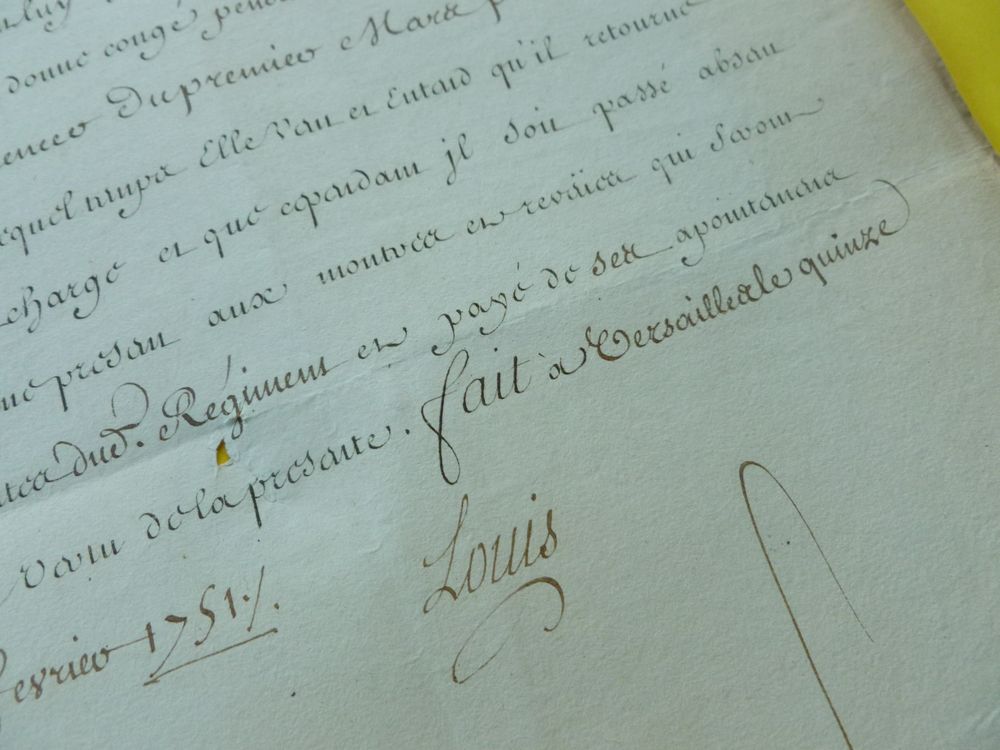 donne congé
Du premier Mars
Elle Veut et Entend qu'il retourne
charge et que cependant jl soit passé absent
present aux montres et reveües qui seront
dud. Regiment et payé de ses apointemens
de la presente. fait à Versailles le quinze
fevrier 1751./.
Louis